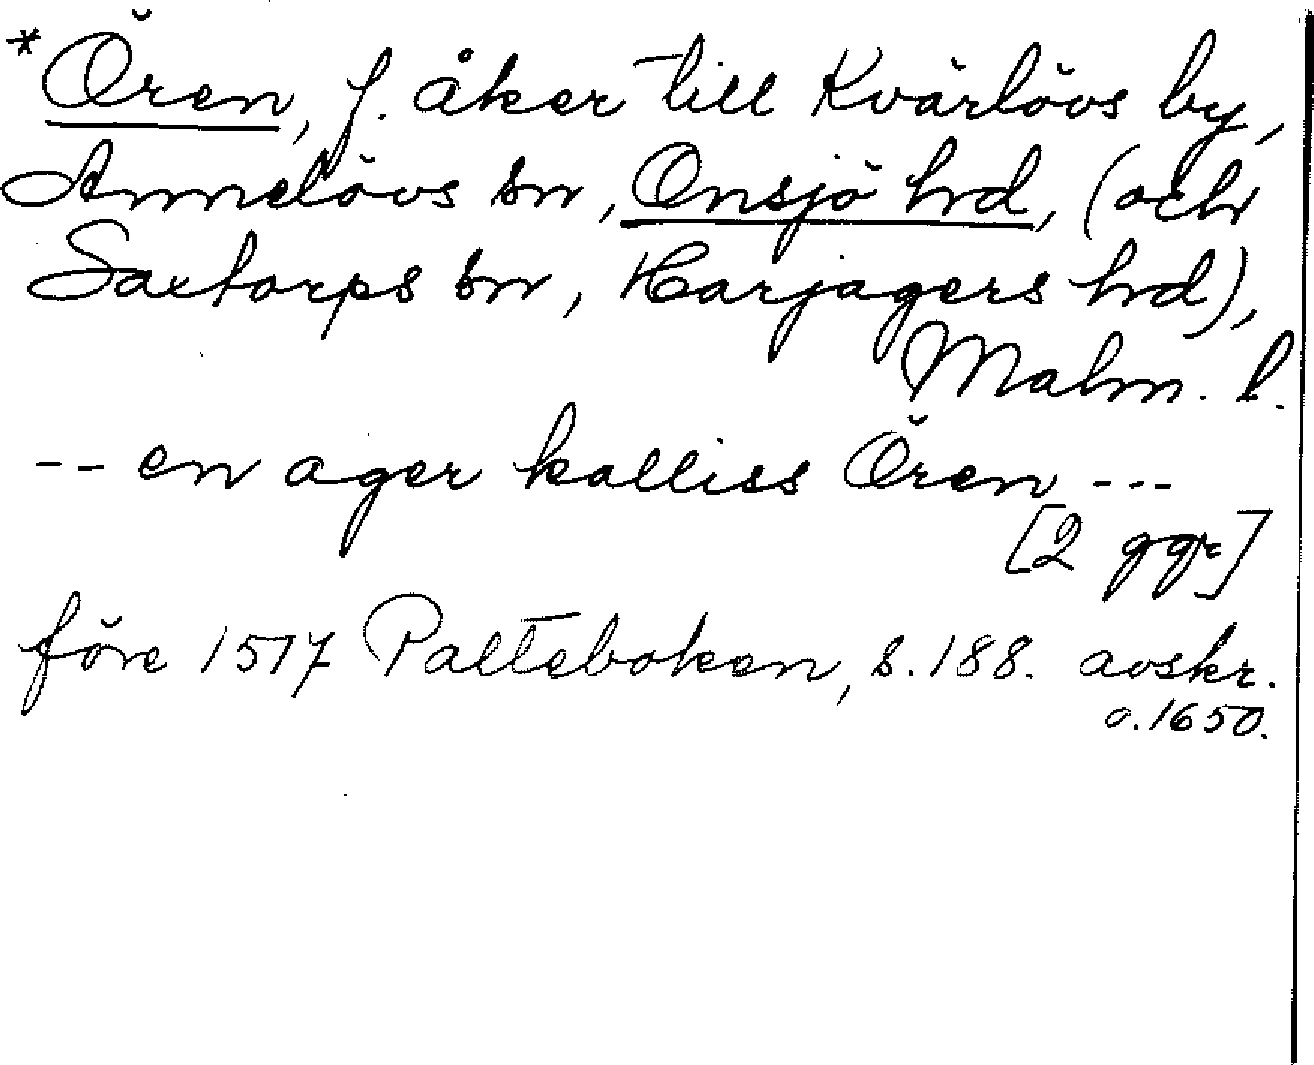 *Ören, f. åker till Kvärlövs by,
Annelövs sn, Onsjö hrd, (och
Saxtorps sn, Harjagers hrd),
Malm. l.
-- en ager kalliss Ören ---
[2 ggr]
före 1517 Palteboken, s. 188. avskr.
o. 1650.